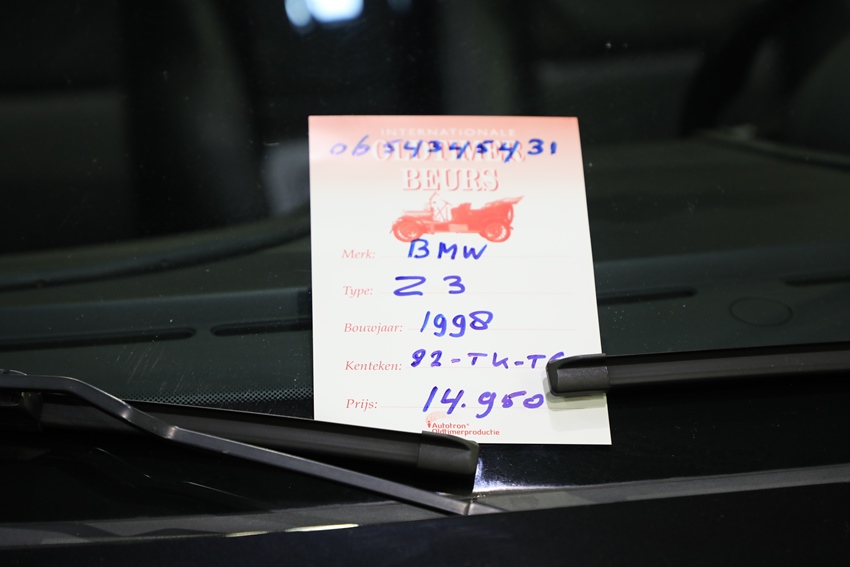 INTERNATIONALE
06 54345431
OLDTIMER
BEURS
Merk: BMW
Type: Z 3
Bouwjaar: 1998
Kenteken: 92-TK-T
Prijs: 14.950
Autotron®
Oldtimerproductie